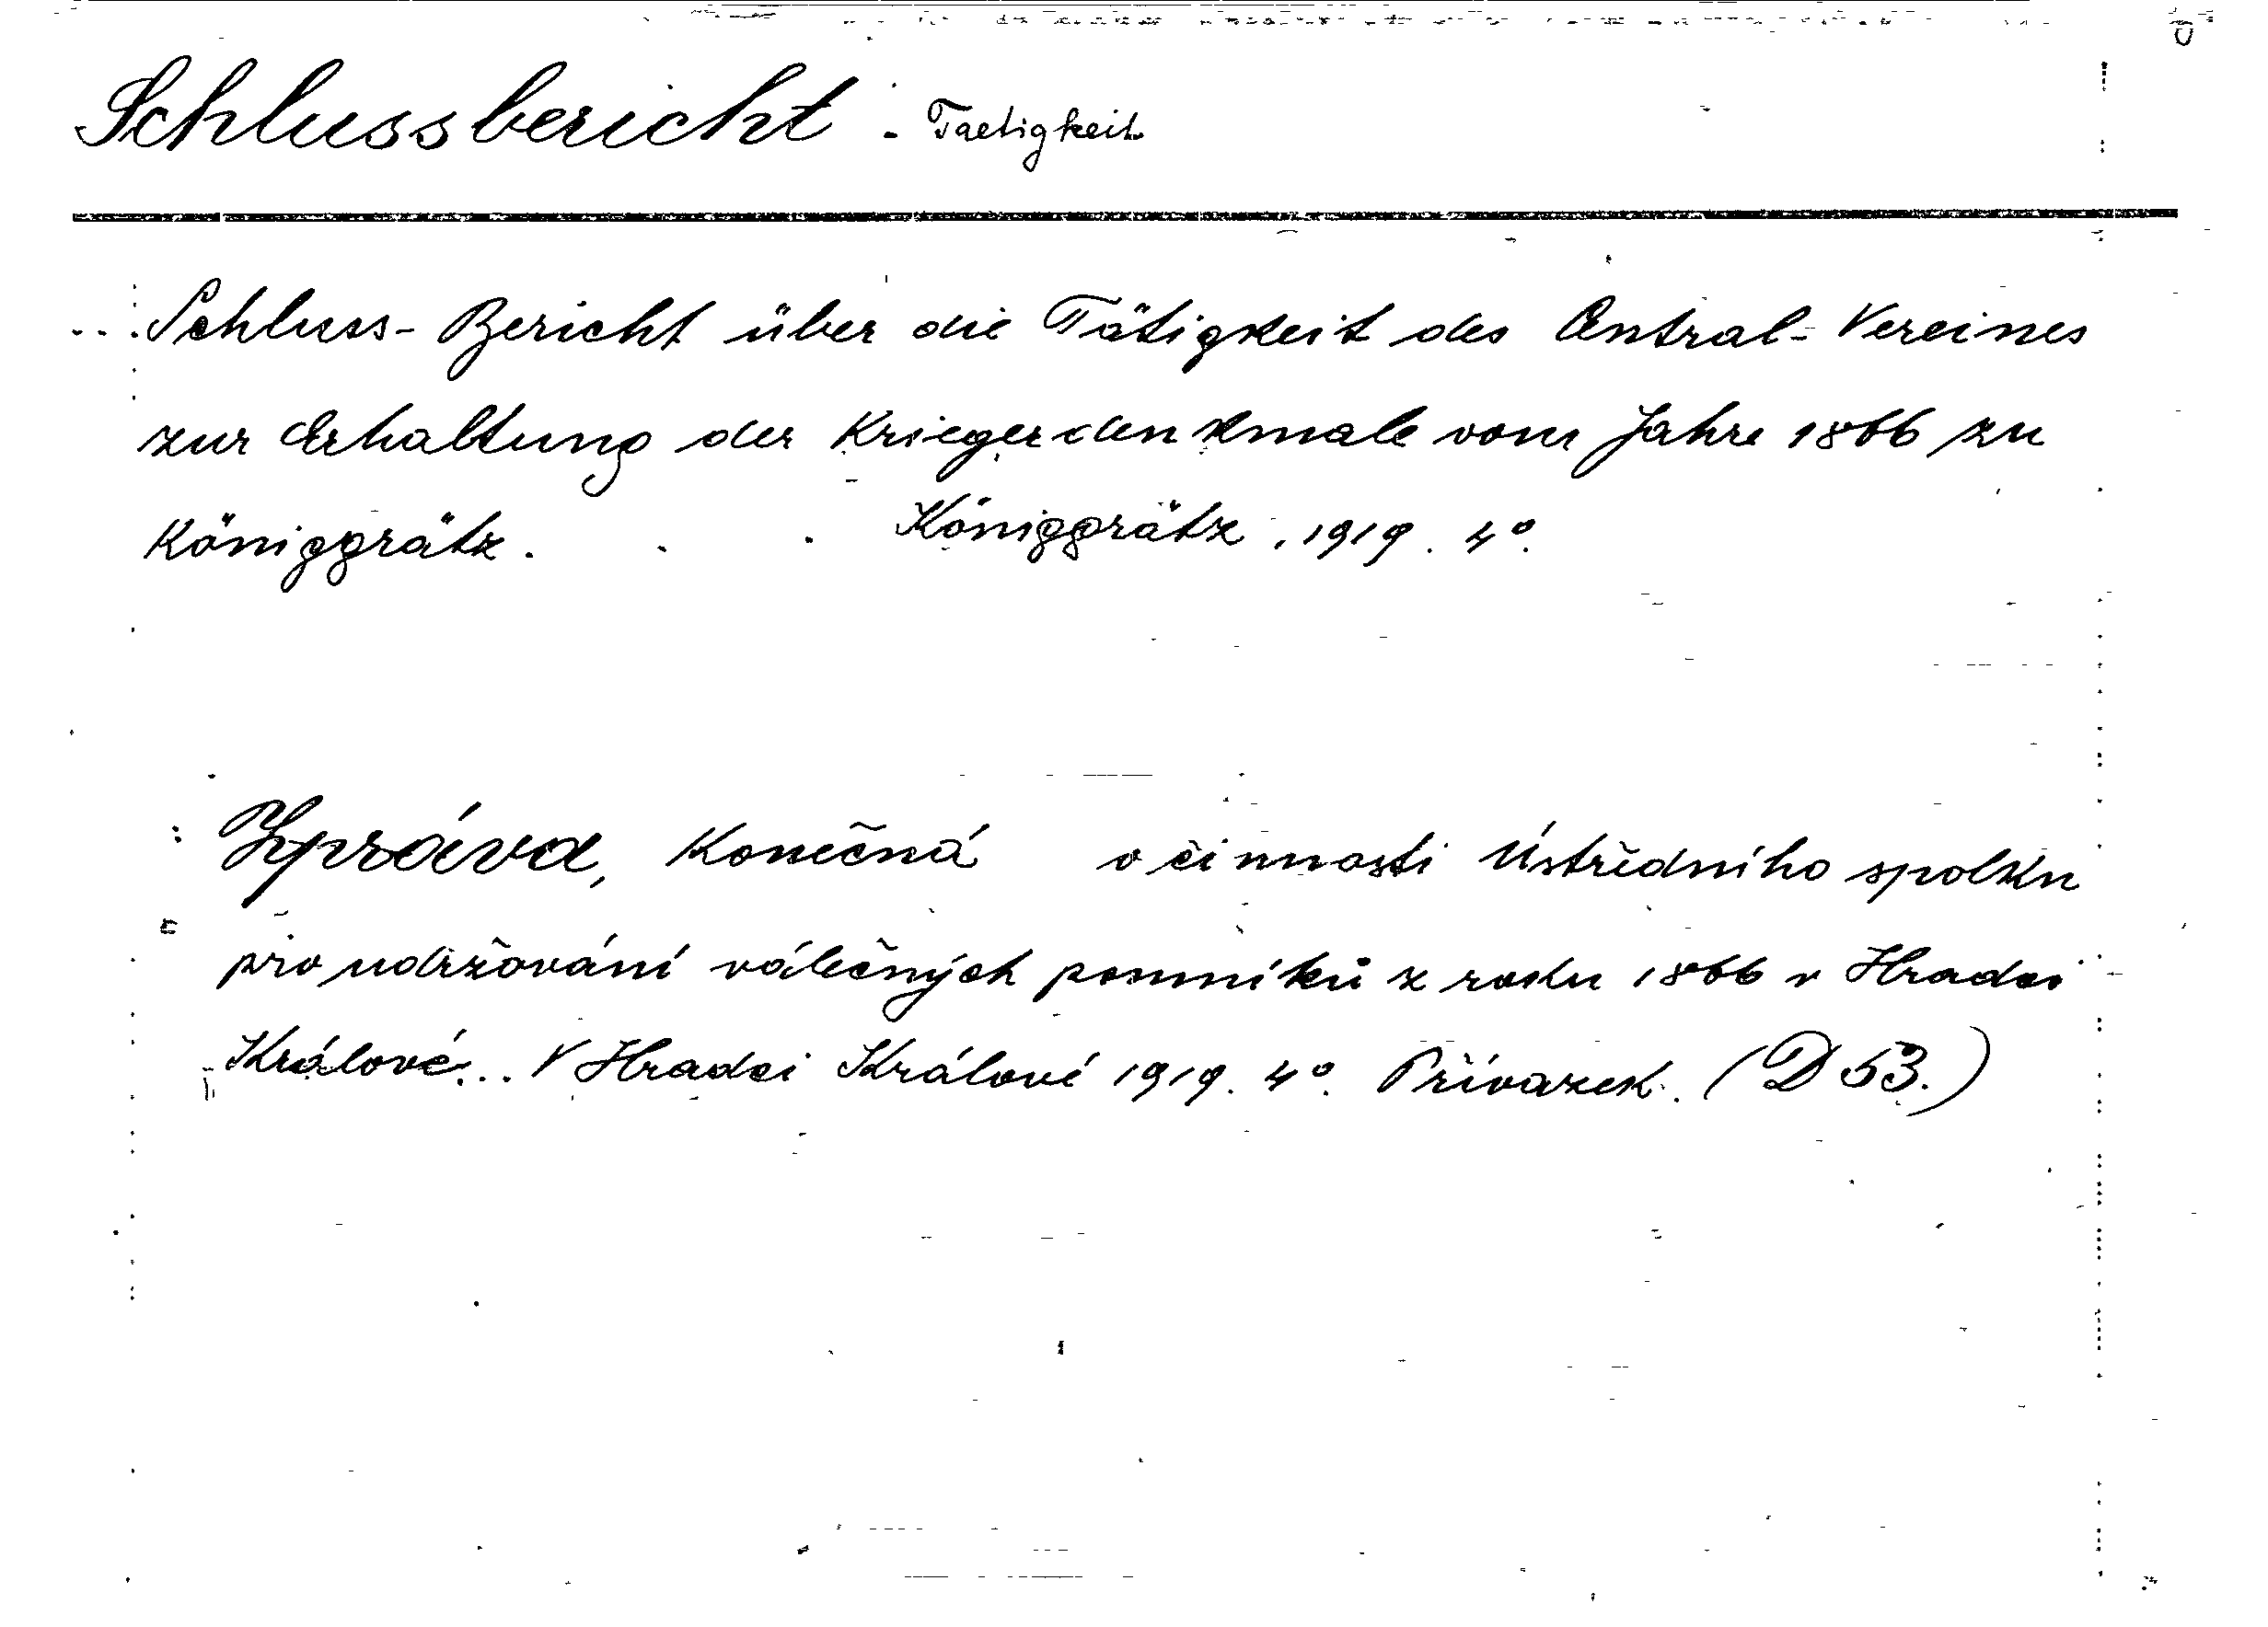 Schlussbericht - Taetigkeit
...Schluss-Bericht über die Tätigkeit des Central-Vereines
zur Erhaltung der Kriegerdenkmale vom Jahre 1866 zu
Königgrätz. . . Königgrätz, 1919. 4°.
Zpráva, Konečná o činnosti Ústředního spolku
pro udržování válečných pomníků z roku 1866 v Hradci
Králové... V Hradci Králové 1919. 4°. Přívazek. (D 53.)